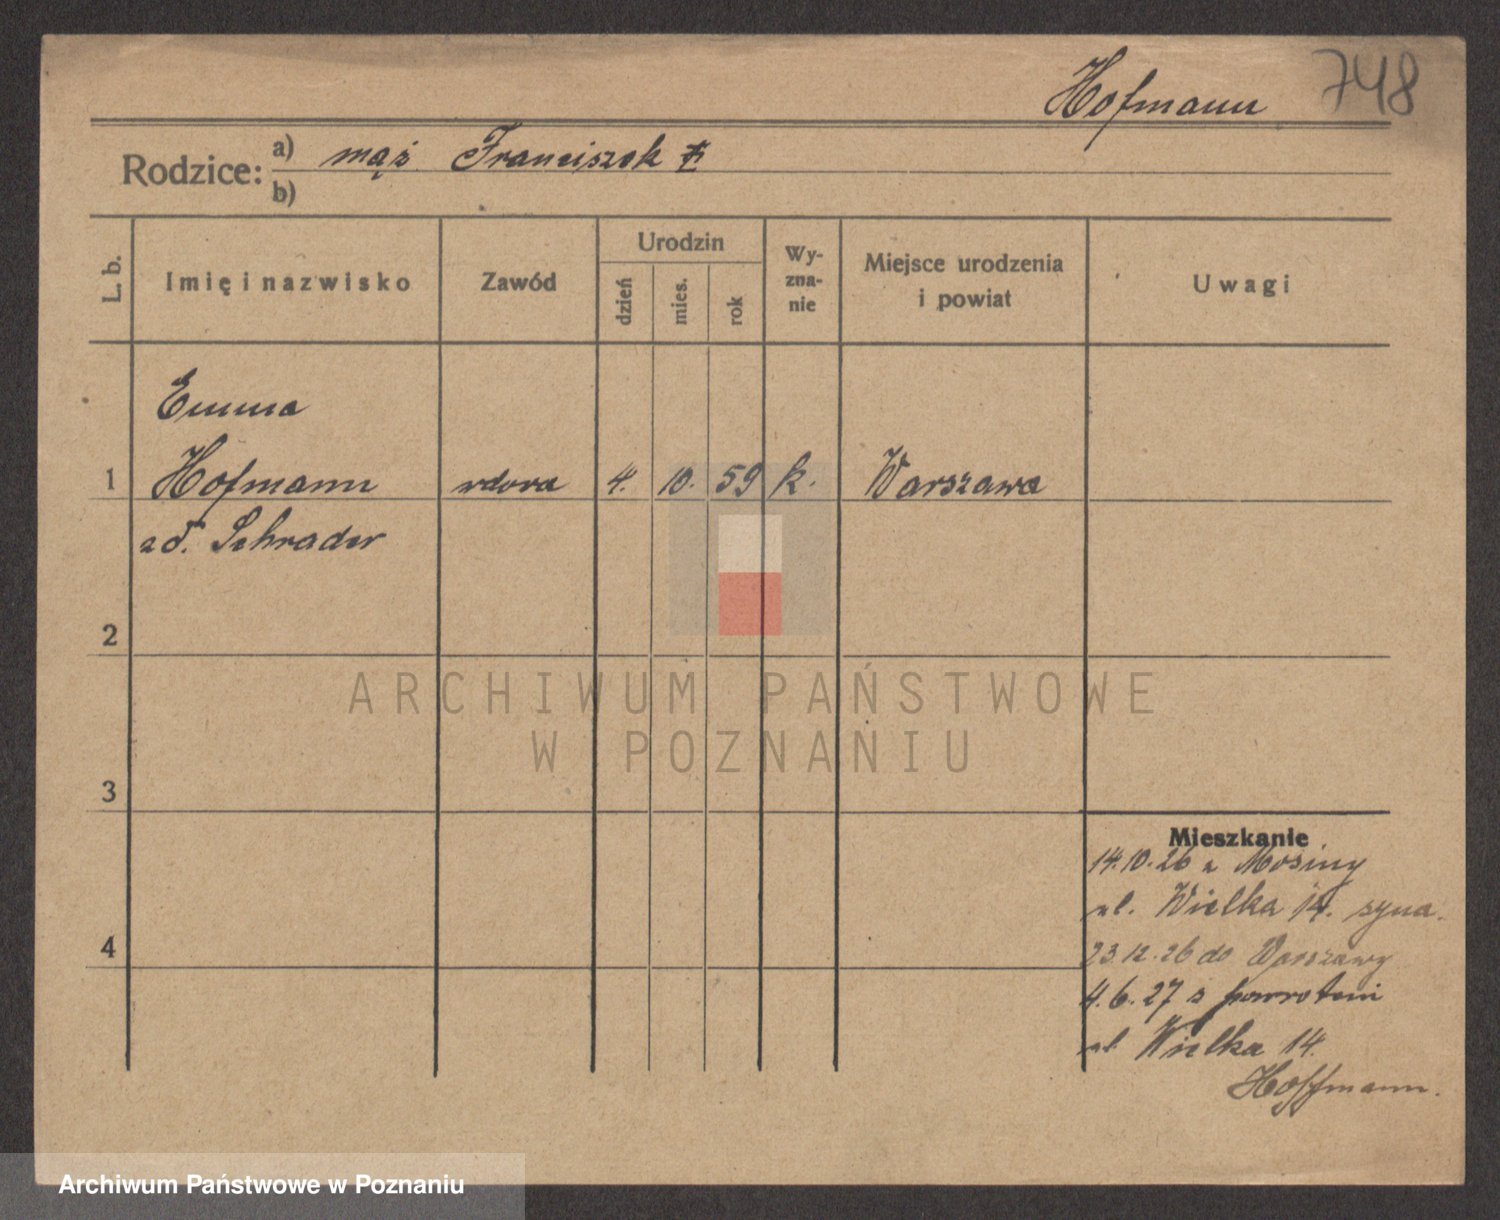 Hofmann 748
Rodzice: a) mąż Franciszek
b)
L. b.
Imię i nazwisko
Zawód
Urodzin
dzień
mies.
rok
Wy-
zna-
nie
Miejsce urodzenia
i powiat
Uwagi
Emma
1 Hofmann wdowa 4. 10. 59 k. Warszawa
zd. Schrader
2
3
4
Mieszkanie
14.10.26 z Mosiny
ul. Wielka 14. syna.
23.12.26 do Warszawy
4.6.27 z powrotem
ul. Wielka 14.
Hoffmann.
ARCHIWUM PAŃSTWOWE
W POZNANIU
Archiwum Państwowe w Poznaniu